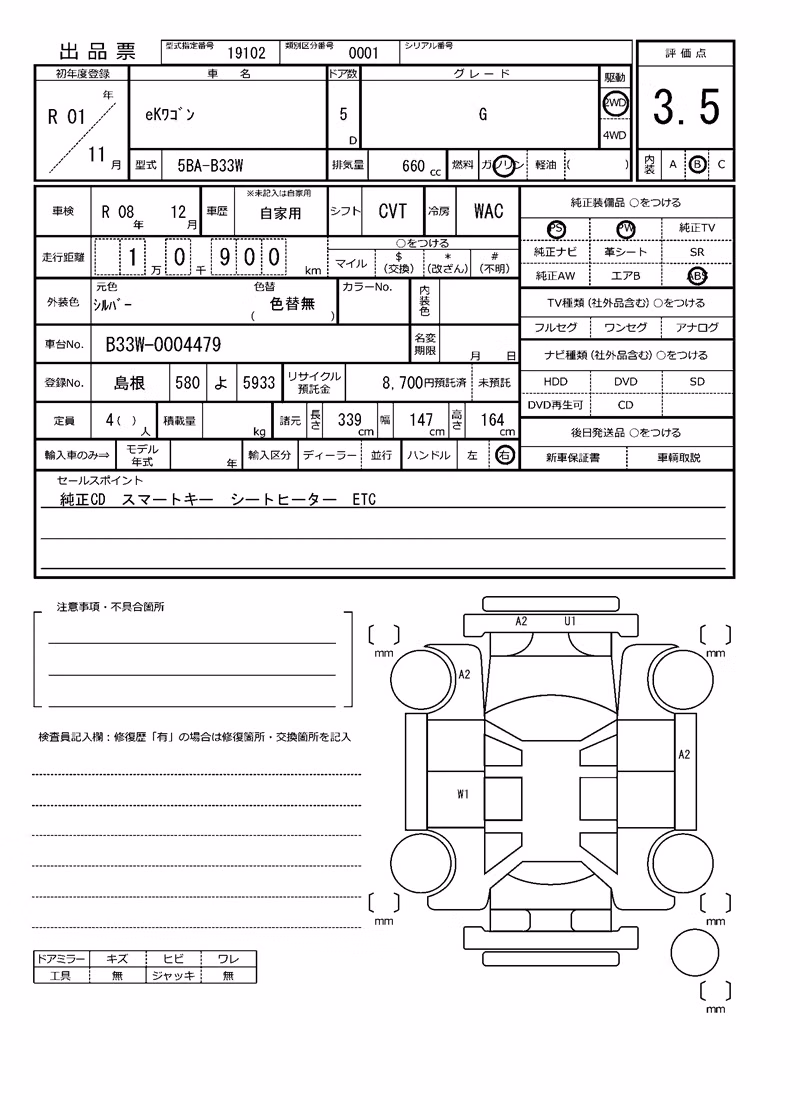 出品票 型式指定番号 19102 類別区分番号 0001 シリアル番号 評価点
初年度登録 車名 ドア数 グレード 駆動
R 01 年 11 月 eKﾜｺﾞﾝ 5 D G 2WD 4WD 3.5
型式 5BA-B33W 排気量 660 cc 燃料 ガソリン 軽油 ( ) 内装 A B C
車検 R 08 年 12 月 車歴 ※未記入は自家用 自家用 シフト CVT 冷房 WAC 純正装備品 ○をつける
PS PW 純正TV
走行距離 1 万 0 千 9 0 0 km ○をつける マイル $ (交換) * (改ざん) # (不明)
純正ナビ 革シート SR
純正AW エアB ABS
外装色 元色 ｼﾙﾊﾞｰ 色替 ( 色替無 ) カラーNo. 内装色
TV種類(社外品含む)○をつける
フルセグ ワンセグ アナログ
車台No. B33W-0004479 名変期限 月 日
ナビ種類(社外品含む)○をつける
登録No. 島根 580 よ 5933 リサイクル預託金 8,700円預託済 未預託
HDD DVD SD
DVD再生可 CD
定員 4( ) 人 積載量 kg 諸元 長さ 339 cm 幅 147 cm 高さ 164 cm
後日発送品 ○をつける
輸入車のみ⇒ モデル年式 年 輸入区分 ディーラー 並行 ハンドル 左 右
新車保証書 車輌取説
セールスポイント
純正CD スマートキー シートヒーター ETC
注意事項・不具合箇所
A2 U1
mm mm
A2
検査員記入欄：修復歴「有」の場合は修復箇所・交換箇所を記入
A2
W1
mm mm
ドアミラー キズ ヒビ ワレ
工具 無 ジャッキ 無
mm